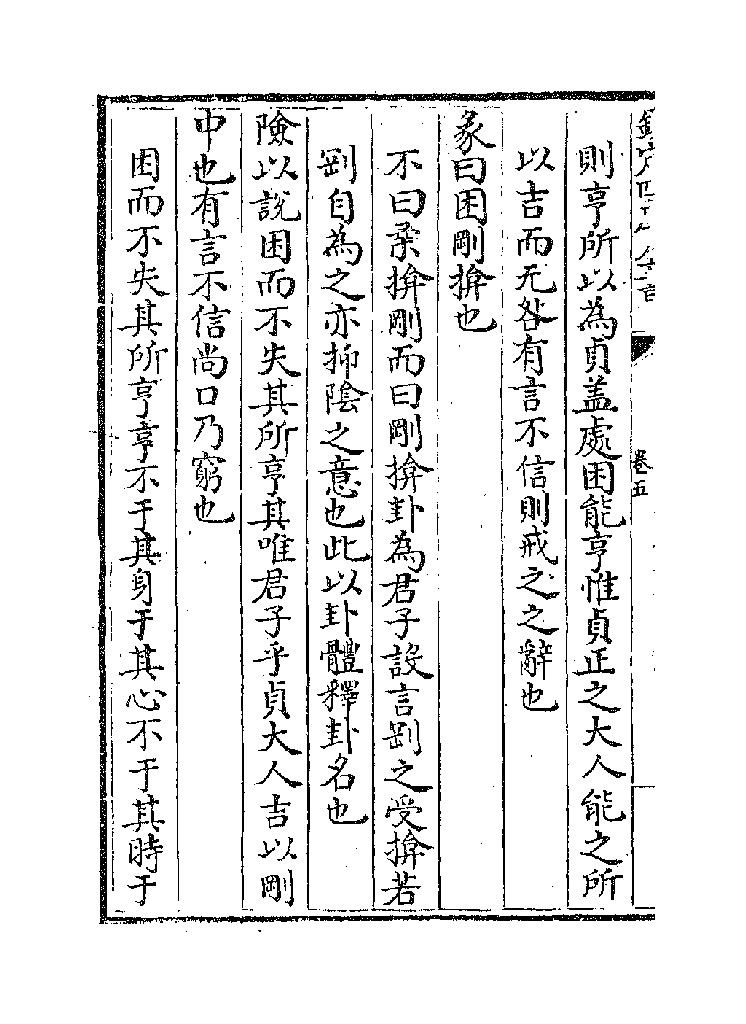 卷五
則亨所以為貞盖處困能亨惟貞正之大人能之所
以吉而无咎有言不信則戒之之辭也
彖曰困剛揜也
不曰柔揜剛而曰剛揜卦為君子設言剛之受揜若
剛自為之亦抑陰之意也此以卦體釋卦名也
險以說困而不失其所亨其唯君子乎貞大人吉以剛
中也有言不信尚口乃窮也
困而不失其所亨亨不于其身于其心不于其時于